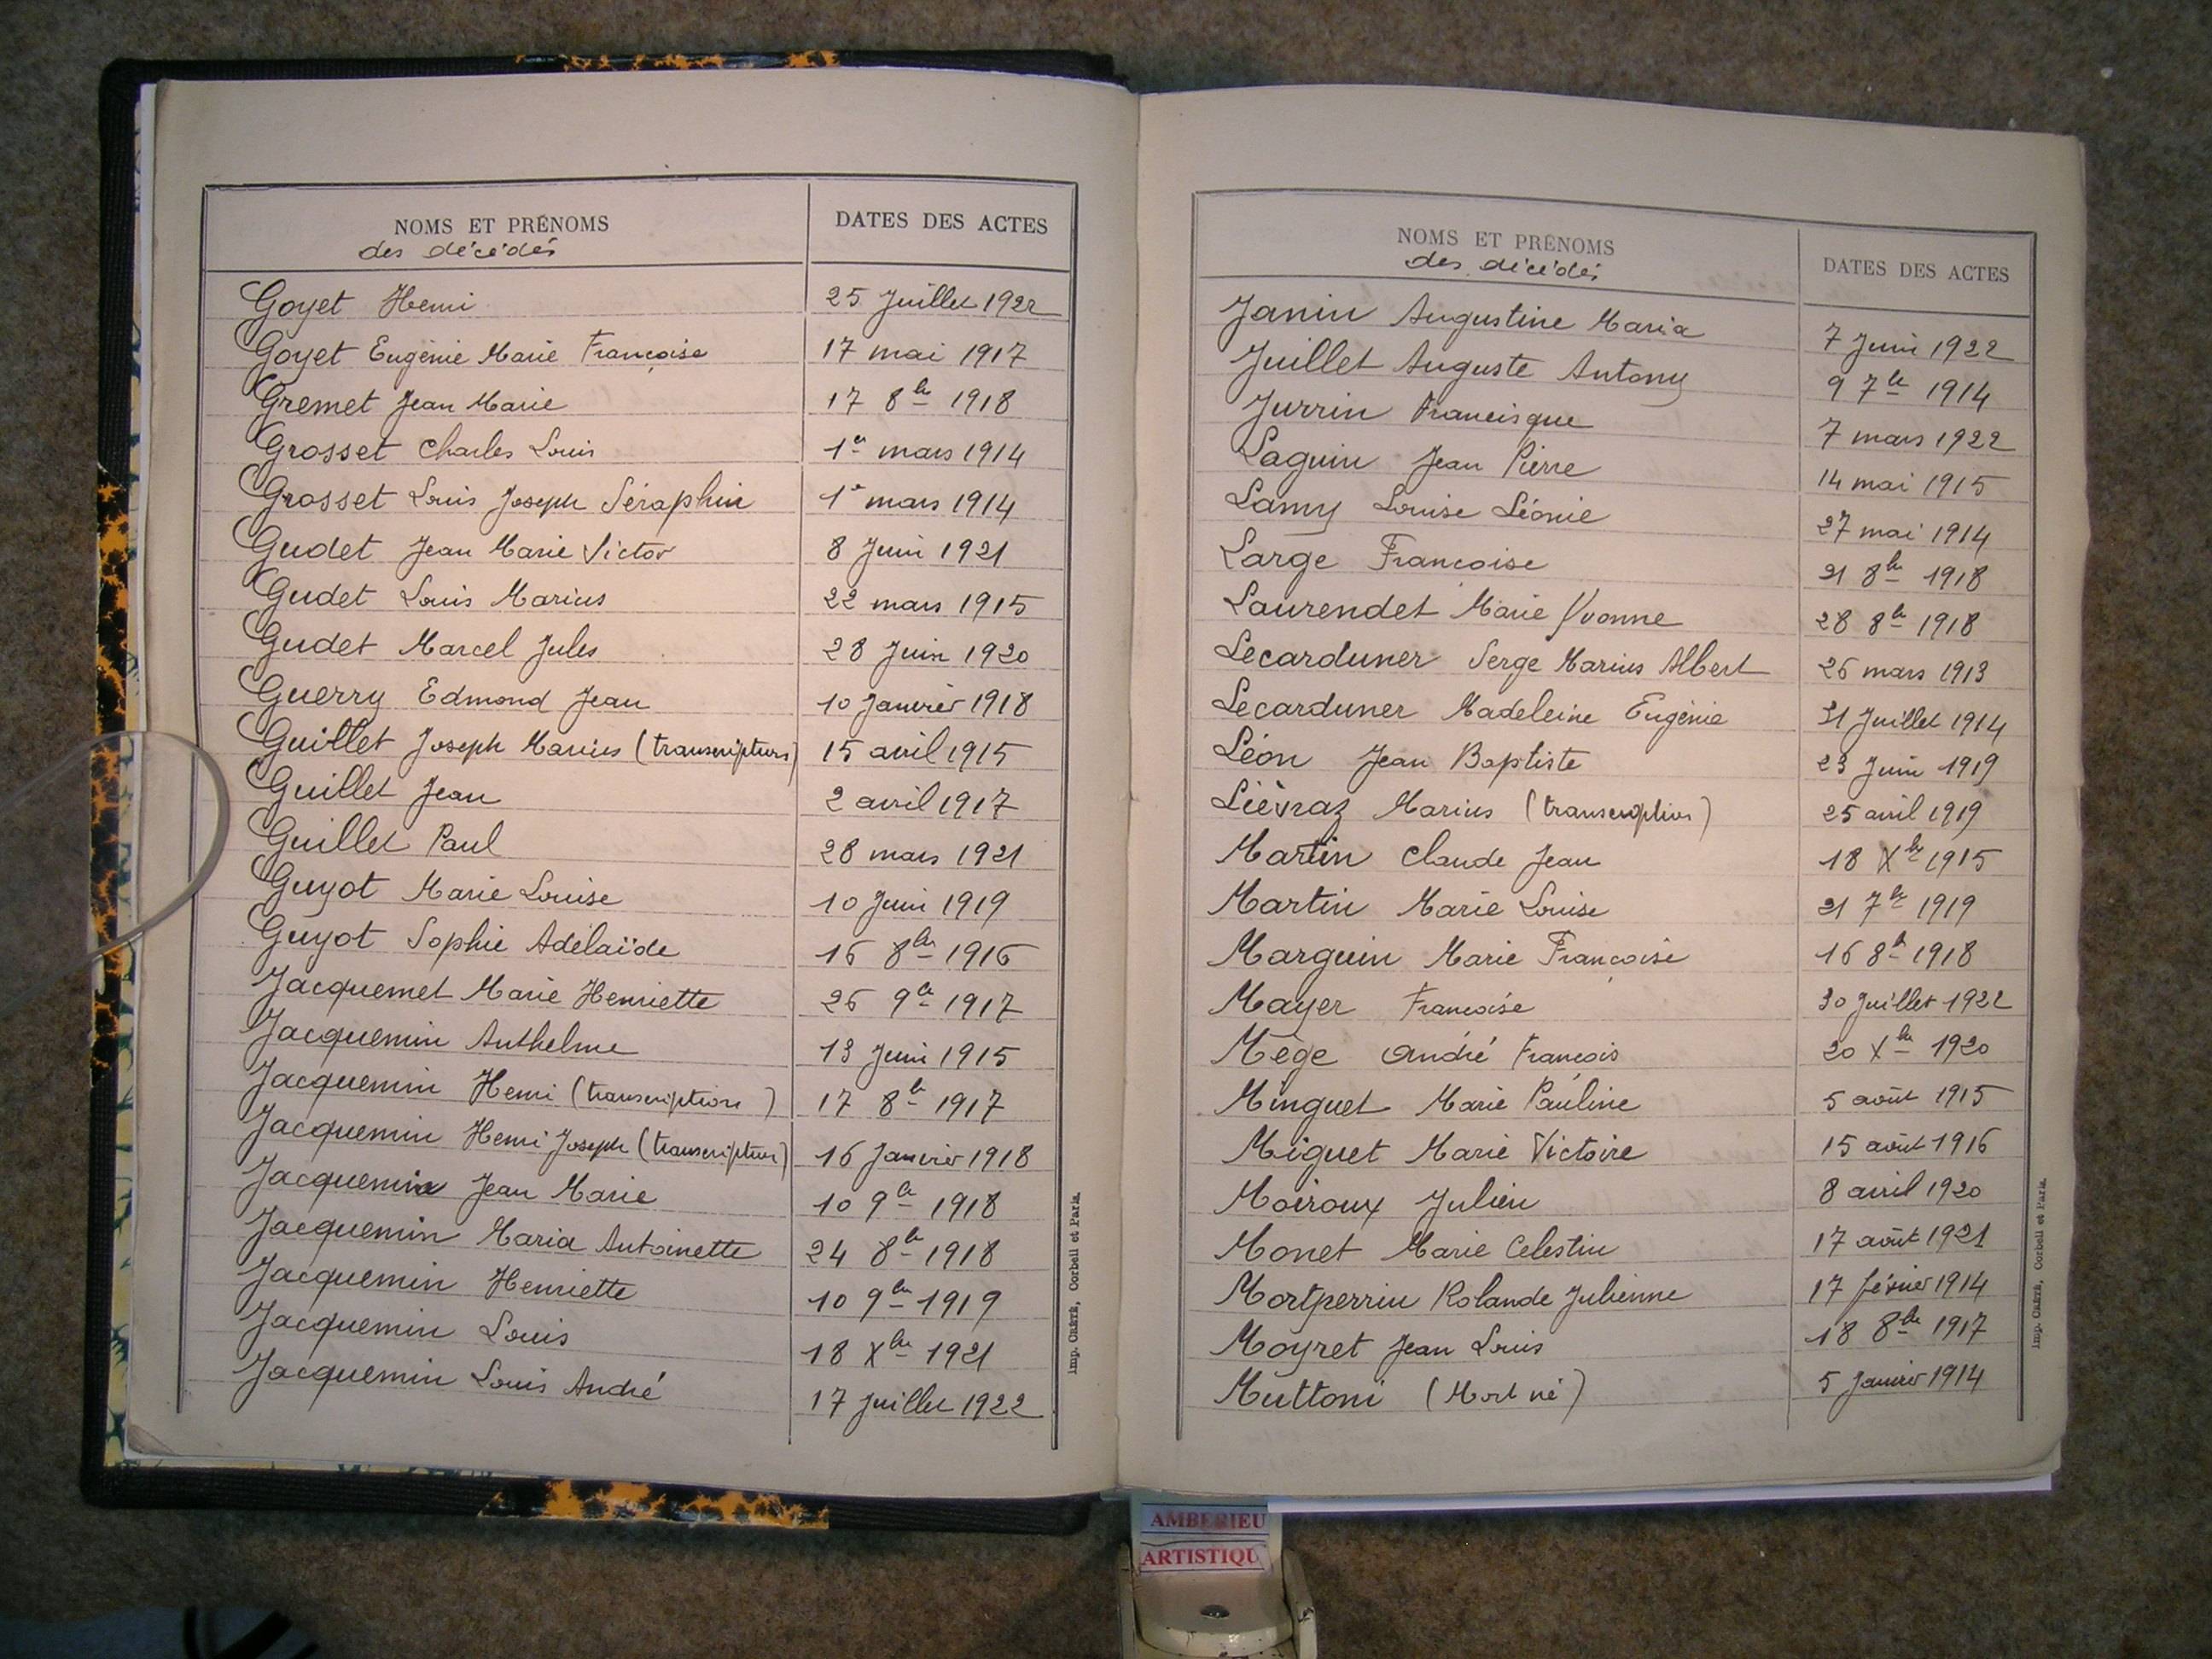 NOMS ET PRÉNOMS DATES DES ACTES
des décédés
Goyet Henri 25 Juillet 1922
Goyet Eugénie Marie Françoise 17 mai 1917
Gremet Jean Marie 17 8bre 1918
Grosset Charles Louis 1er mars 1914
Grosset Louis Joseph Séraphin 1er mars 1914
Gudet Jean Marie Victor 8 Juin 1921
Gudet Louis Marius 22 mars 1915
Gudet Marcel Jules 28 Juin 1920
Guerry Edmond Jean 10 Janvier 1918
Guillet Joseph Marius (transcription) 15 avril 1915
Guillet Jean 2 avril 1917
Guillet Paul 28 mars 1921
Guyot Marie Louise 10 Juin 1919
Guyot Sophie Adélaïde 16 8bre 1916
Jacquemet Marie Henriette 26 9bre 1917
Jacquemin Anthelme 13 Juin 1915
Jacquemin Henri (transcription) 17 8bre 1917
Jacquemin Henri Joseph (transcription) 16 Janvier 1918
Jacquemin Jean Marie 10 9bre 1918
Jacquemin Maria Antoinette 24 8bre 1918
Jacquemin Henriette 10 9bre 1919
Jacquemin Louis 18 Xbre 1921
Jacquemin Louis André 17 Juillet 1922
Imp. Crété, Corbeil et Paris.
NOMS ET PRÉNOMS DATES DES ACTES
des décédés
Janin Augustine Maria 7 Juin 1922
Juillet Auguste Antony 9 7bre 1914
Jurrin Francisque 7 mars 1922
Laguin Jean Pierre 14 mai 1915
Lamy Louise Léonie 27 mai 1914
Large Françoise 21 8bre 1918
Laurendet Marie Yvonne 28 8bre 1918
Lecarduner Serge Marius Albert 26 mars 1913
Lecarduner Madeleine Eugénie 31 Juillet 1914
Léon Jean Baptiste 23 Juin 1919
Lièvraz Marius (transcription) 25 avril 1919
Martin Claude Jean 18 Xbre 1915
Martin Marie Louise 21 7bre 1919
Marguin Marie Françoise 16 8bre 1918
Mayer Françoise 30 Juillet 1922
Mège André François 20 Xbre 1920
Minguet Marie Pauline 5 août 1915
Miguet Marie Victoire 15 août 1916
Moiroux Julien 8 avril 1920
Monet Marie Celestin 17 août 1921
Mortperrin Rolande Julienne 17 février 1914
Moyret Jean Louis 18 8bre 1917
Muttoni (Mort né) 5 Janvier 1914
Imp. Crété, Corbeil et Paris.
AMBERIEU
ARTISTIQU